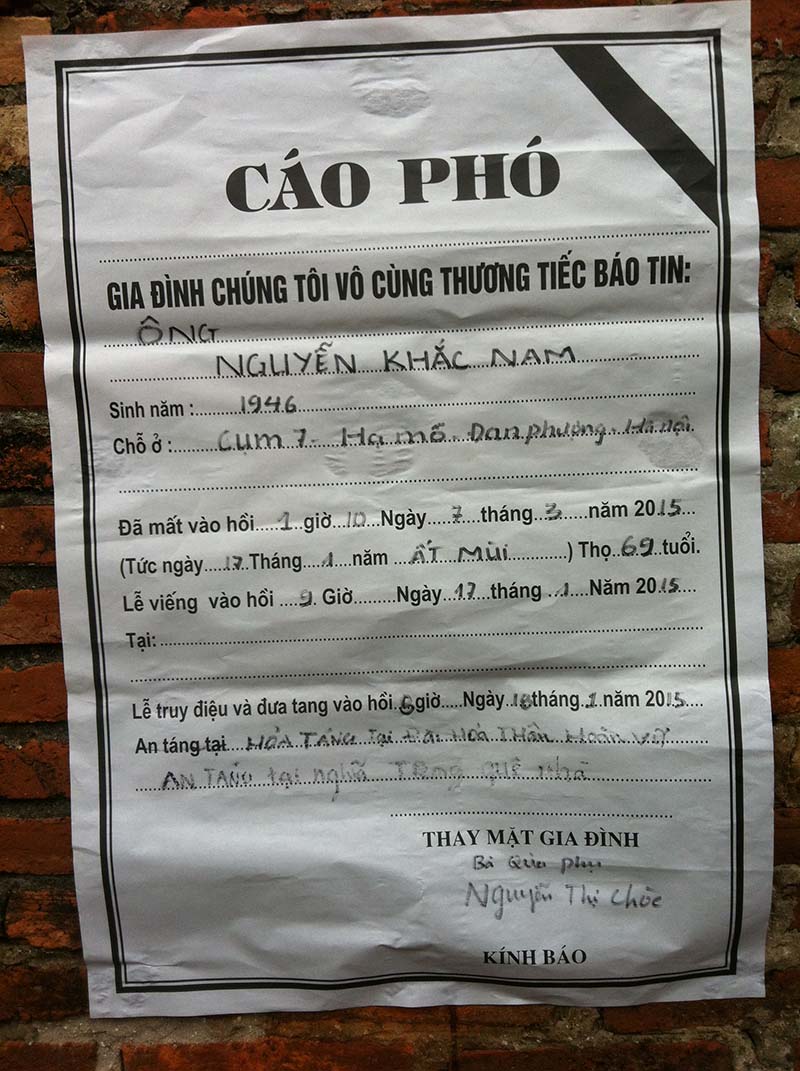 CÁO PHÓ
GIA ĐÌNH CHÚNG TÔI VÔ CÙNG THƯƠNG TIẾC BÁO TIN:
ÔNG
NGUYỄN KHẮC NAM
Sinh năm : 1946
Chỗ ở : Cụm 7 - Hạ mỗ - Đan phượng - Hà nội.
Đã mất vào hồi 1 giờ 10 Ngày 7 tháng 3 năm 2015
(Tức ngày 17 Tháng 1 năm ẤT MÙI ) Thọ 69 tuổi.
Lễ viếng vào hồi 9 Giờ Ngày 17 tháng 1 Năm 2015
Tại:
Lễ truy điệu và đưa tang vào hồi 6 giờ Ngày 18 tháng 1 năm 2015
An táng tại HỎA TÁNG Tại Đài HOÁ THÂN Hoàn Vũ
AN TÁNG tại nghĩa TRang quê nhà
THAY MẶT GIA ĐÌNH
Bà Qủa phụ
Nguyễn Thị Chóc
KÍNH BÁO